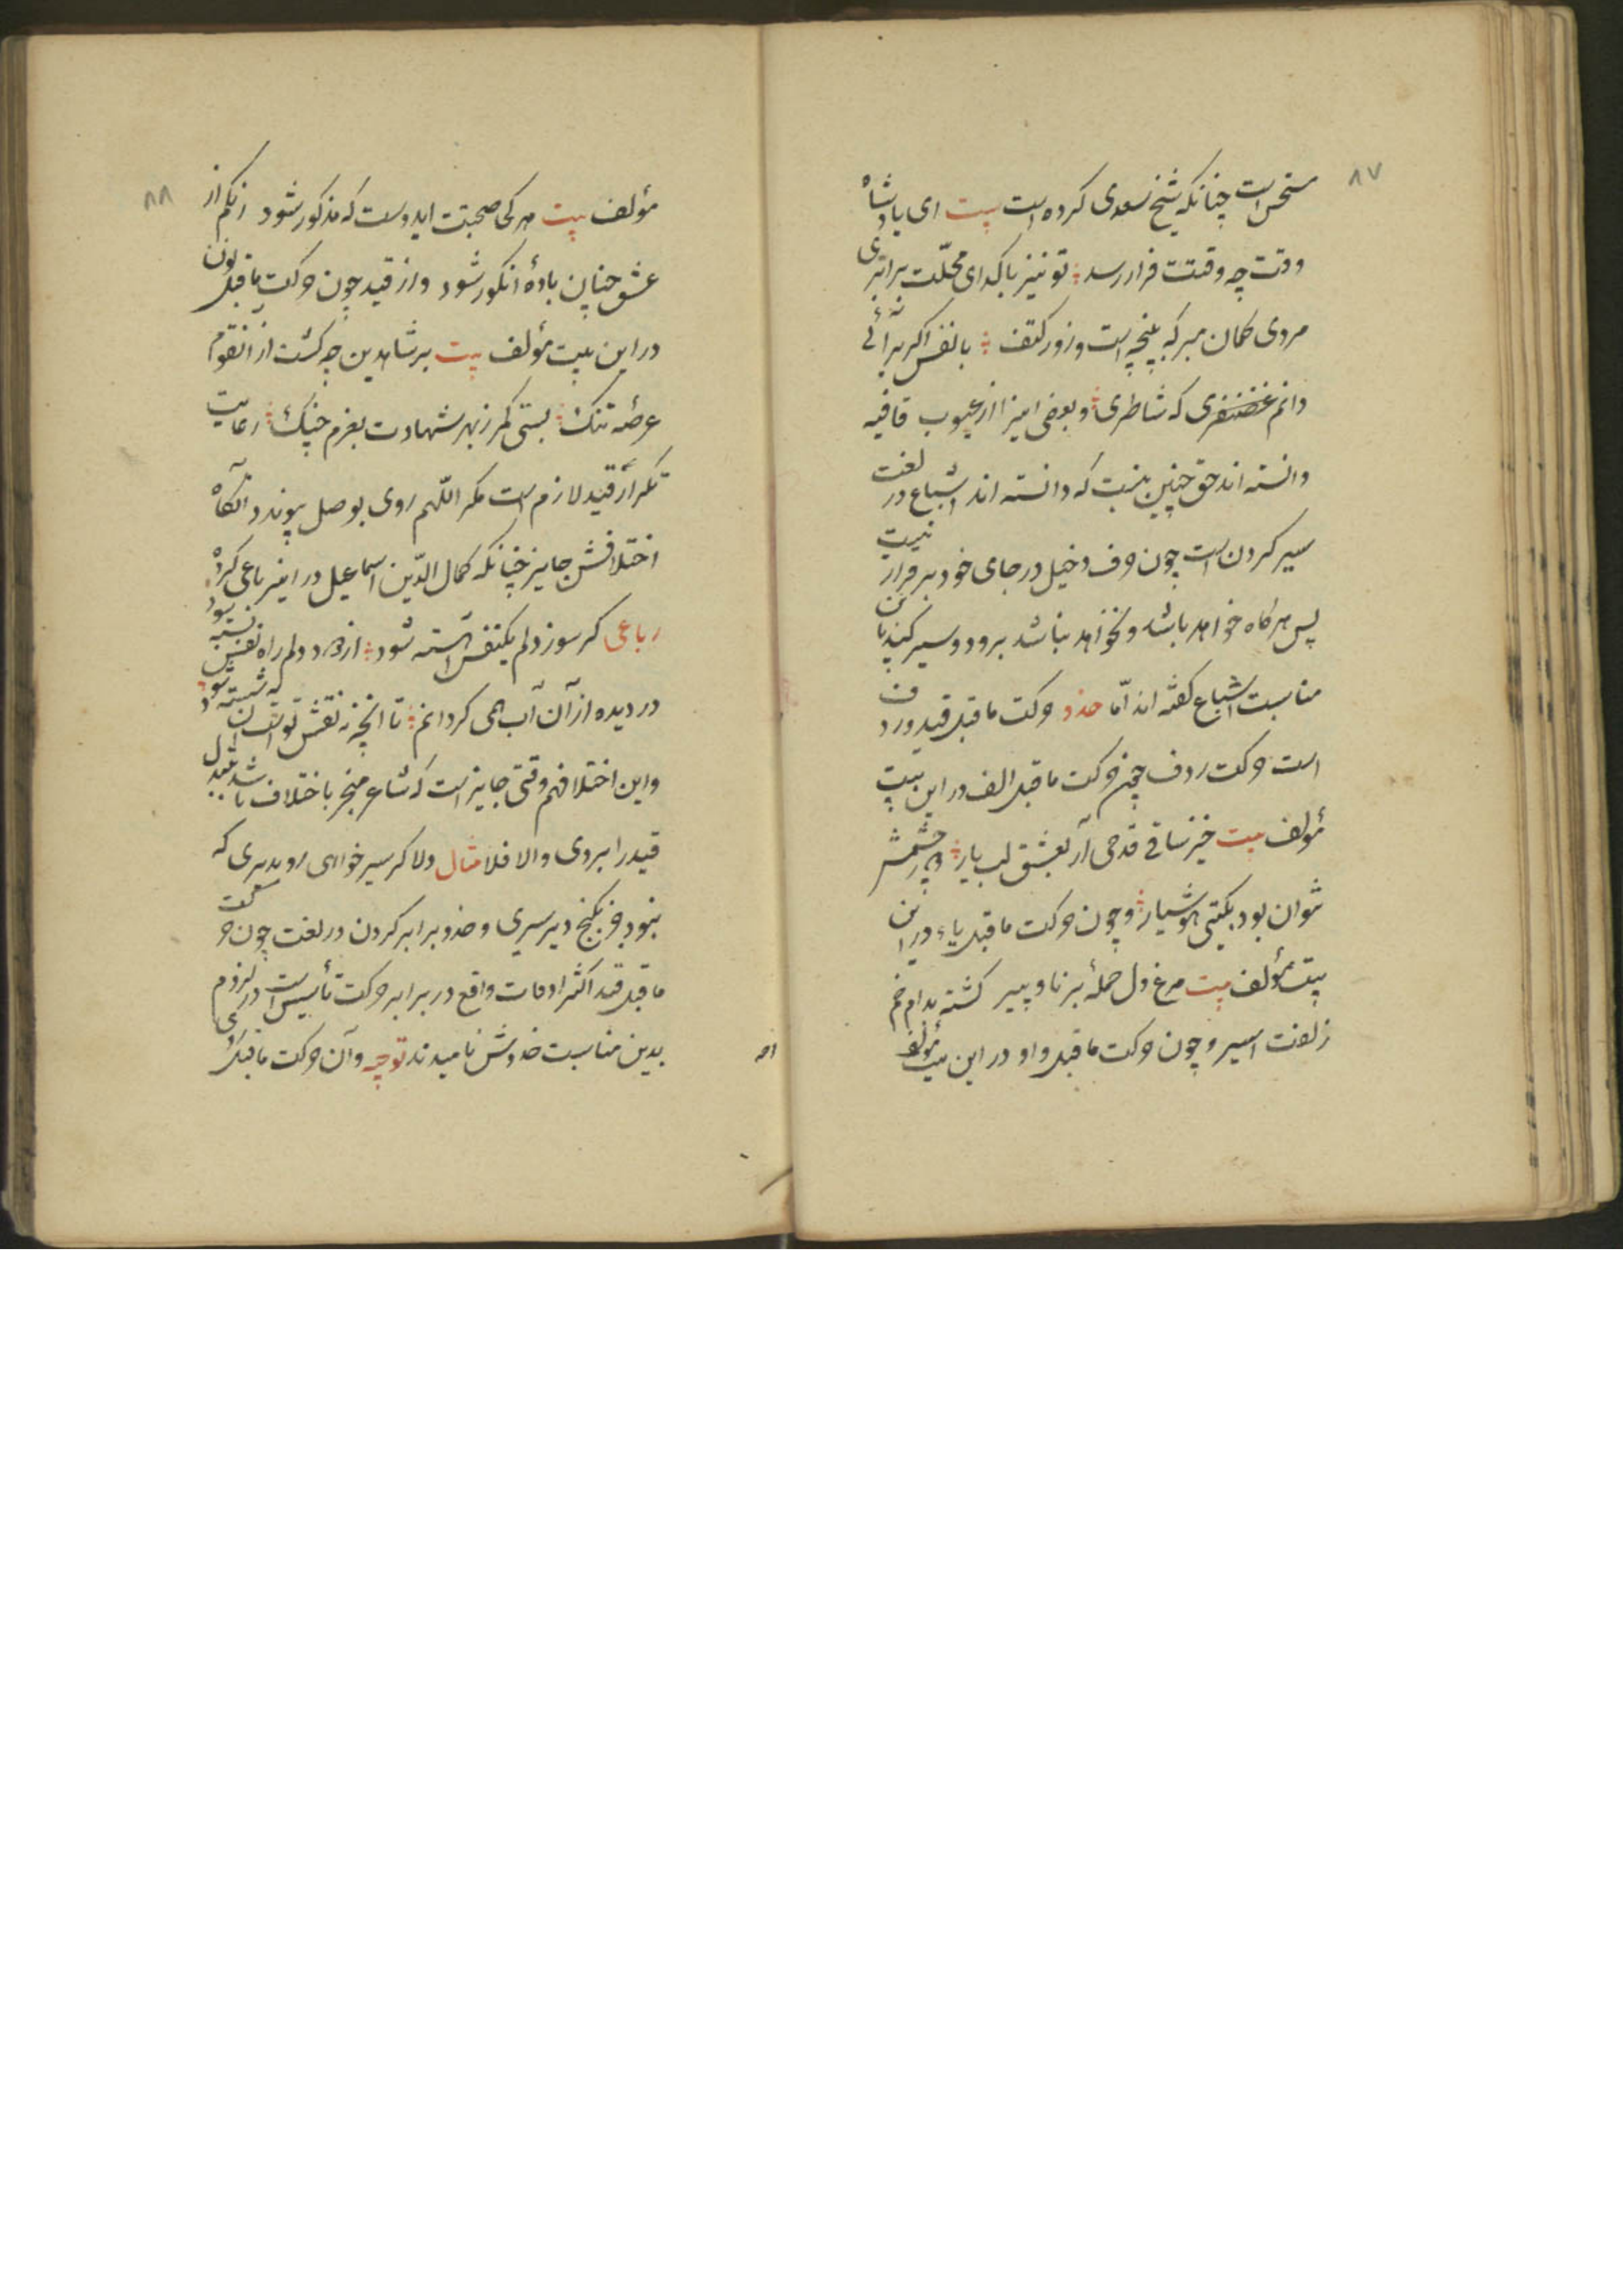 ۸۷
مستحسن است چنانکه شیخ سعدی کرده است بیت ای پادشاه
وقت چه وقتت فرا رسد تو نیز با گدای محلّت برابری
مردی گمان مبر که بپنجه است و زور کتف با نفس اگر برآئی
دانم غضنفری که شاطری و بعضی اینرا از عیوب قافیه
دانسته اند حق چنین نیست که دانسته اند اشباع در لغت
سیر کردن است چون حرف دخیل در جای خود برقرار نیست
پس هر گاه خواهد باشد و نخواهد نباشد برود و سیر کند باین
مناسبت اشباع گفته اند امّا حذو حرکت ماقبل قید و ردف
است حرکت ردف چون حرکت ماقبل الف در این بیت
مؤلف بیت خیز ساقی قدحی آر بعشق لب یار چشمش
نتوان بود بگیتی هوشیار و چون حرکت ماقبل یاء در این
بیت مؤلف بیت مرغ دل جملهٔ برنا و پیر گشته بدام خم
زلفت اسیر و چون حرکت ماقبل واو در این بیت مؤلف
۸۸
مؤلف بیت هر کی صحبتت ایدوست که مذکور شود از
عشق چنان بادهٔ انگور شود و از قید چون حرکت ماقبل نون
در این بیت مؤلف بیت بر شاهدین چه گشت از انقوم
عرصه تنگ بستی کمر ز بهر شهادت بعزم جنگ رعایت
تکرار قید لازم است مگر اللّهم روی بوصل پیوندد آنگاه
اختلافش جایز چنانکه کمال الدّین اسماعیل در اینرباعی کرده
رباعی گر سوز دلم یکنفس آهسته شود از دود دلم راه نفس بسته شود
در دیده از آن آب همی گردانم تا آنچه ز نقش توست آن شسته شود
و این اختلاف هم وقتی جایز است که شاعر منجر باختلاف باشد تبدیل
قید را بروی و الا فلا مثال دلا گر سیر خواهی رو بدیری که
نبود جز بکنج دیر سیری و حذو برابر کردن در لغت چون حرکت
ماقبل قید اکثر اوقات واقع در برابر حرکت تأسیس است در لزوم
بدین مناسبت حذوش نامیدند توجیه و آن حرکت ماقبل